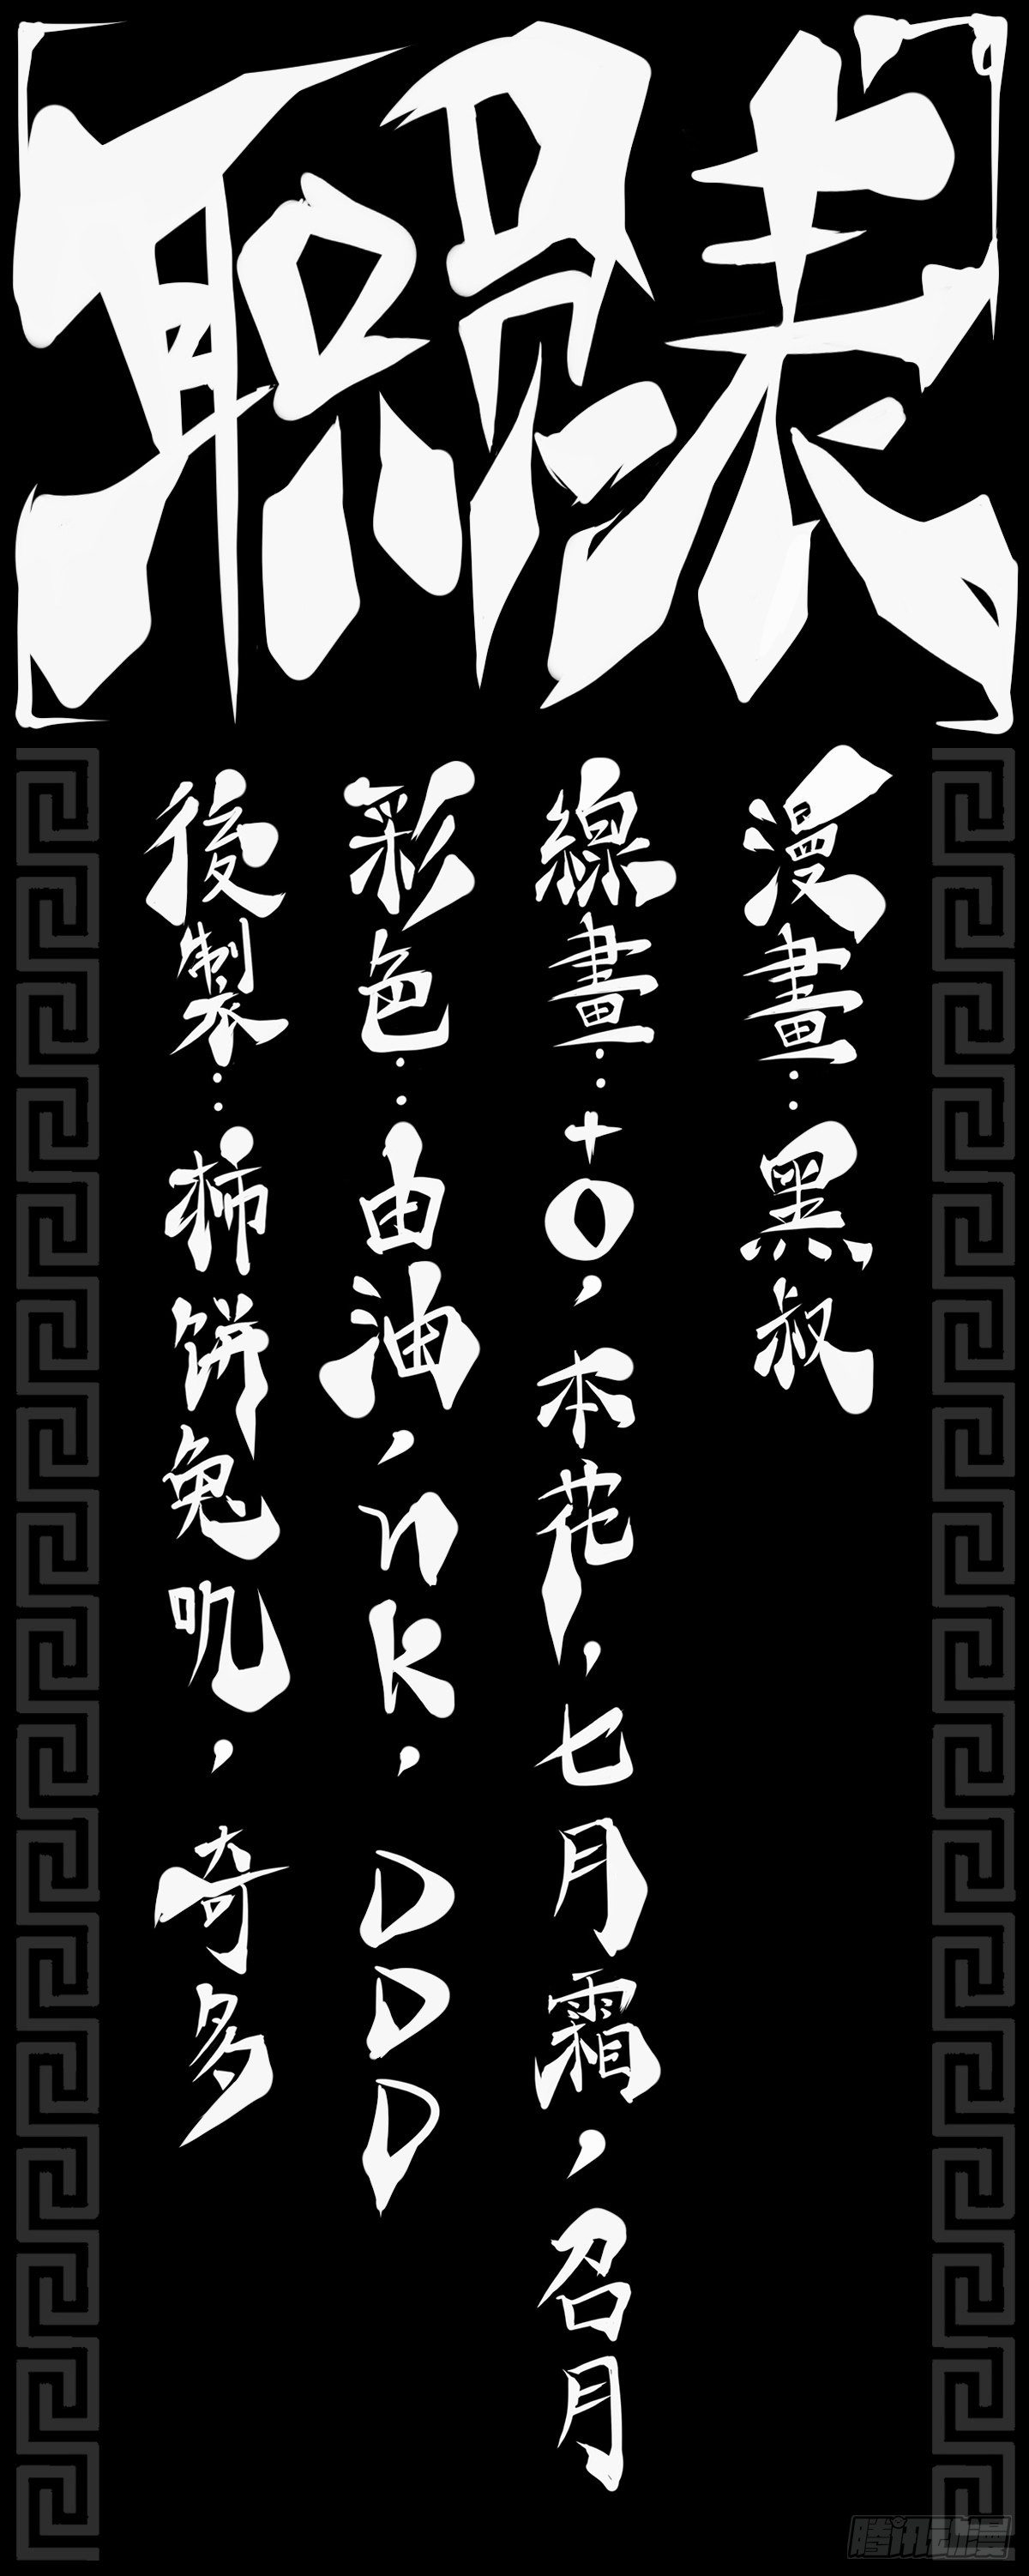 职员表
漫畫：黑叔
線畫：+O，本花，七月霜，召月
彩色：由油，nK，DDD
後製：柿饼兔叽，奇多
腾讯动漫